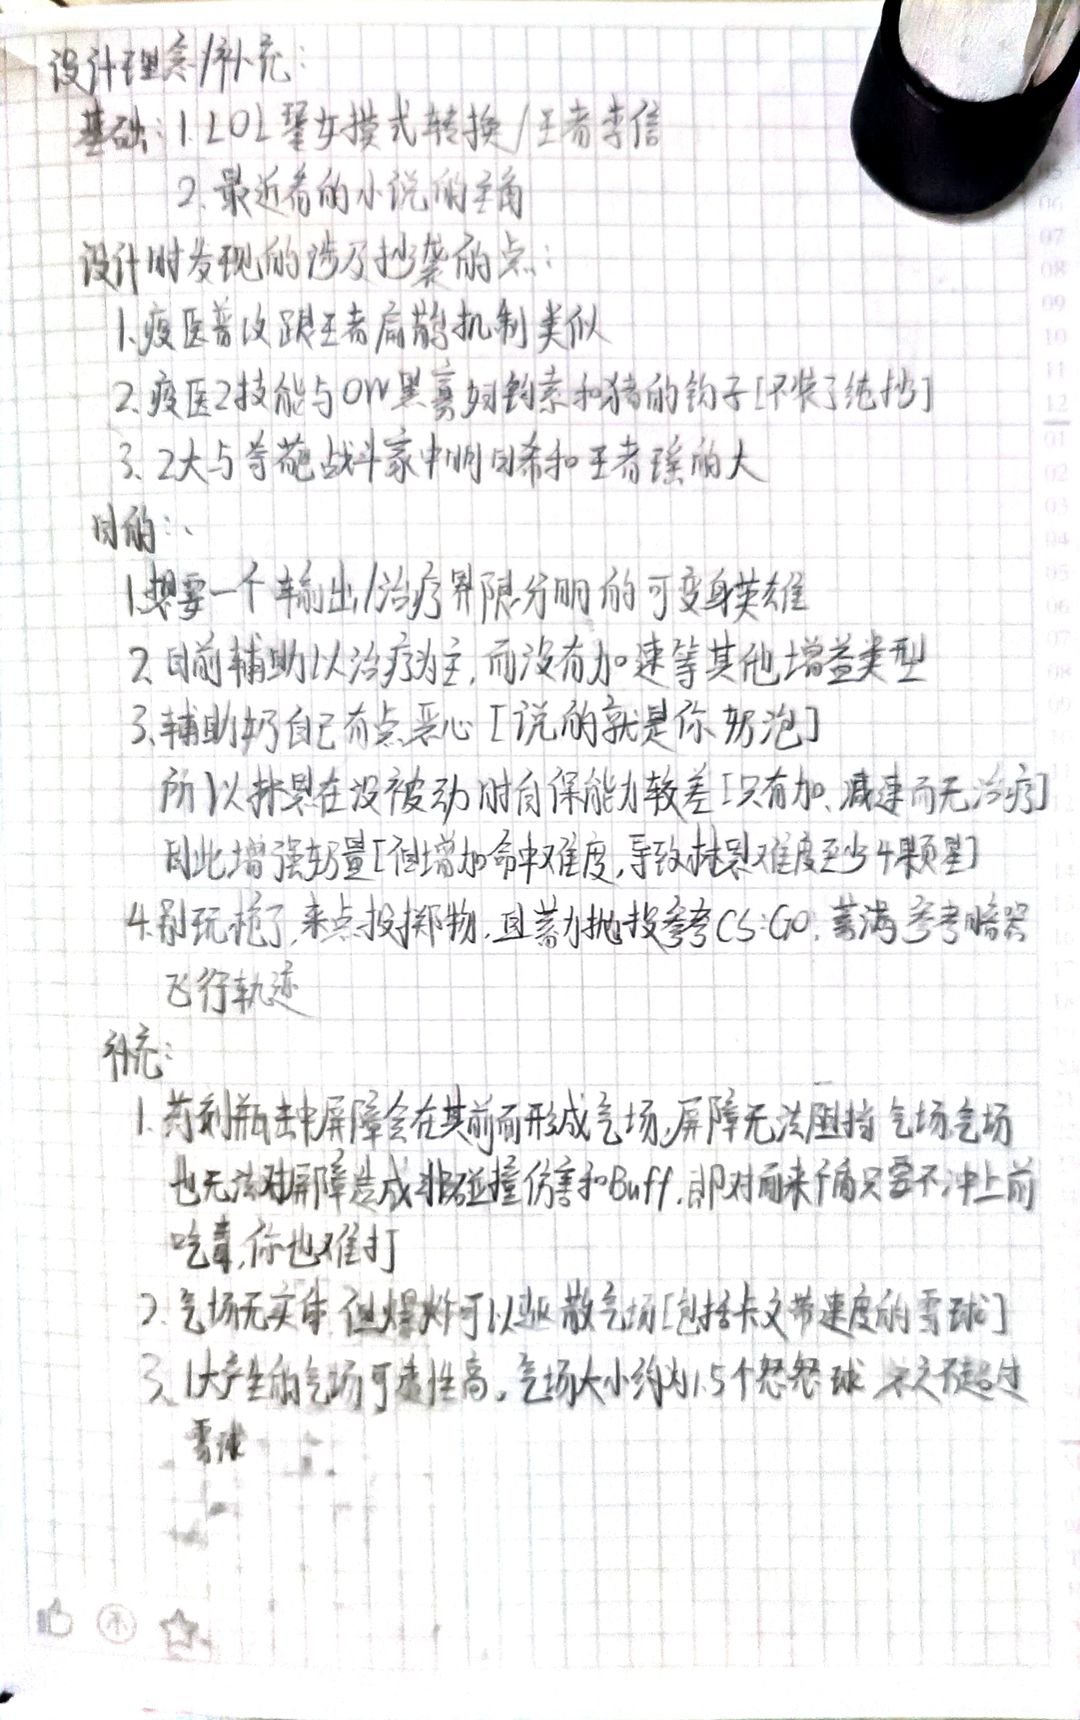 设计理念/补充:
基础:1.LOL 豹女模式转换/王者李信
2.最近看的小说的主角
设计时发现的涉及抄袭的点:
1.疫医普攻跟王者扁鹊机制类似
2.疫医2技能与OW黑寡妇钩索和猪的钩子[不装了纯抄]
3.2大与香葩战斗家中明日希和王者瑶的大
目的:
1.想要一个输出/治疗界限分明的可变身英雄
2.目前辅助以治疗为主,而没有加速等其他增益类型
3.辅助奶自己有点恶心[说的就是你奶泡]
所以 在没被动时自保能力较差[只有加、减速而无治疗]
因此增强奶量[但增加命中难度,导致 难度至少4颗星]
4.别玩枪了,来点投掷物,且蓄力抛投参考CS:GO,蓄满参考暗器
飞行轨迹
补充:
1.药剂瓶击中屏障会在其前面形成气场,屏障无法阻挡气场气场
也无法对屏障造成非碰撞伤害和Buff,即对面来盾只要不冲上前
吃毒,你也难打
2.气场无实体,但爆炸可以驱散气场[包括卡文带速度的雪球]
3.1大产生的气场可 性高,气场大小约为1.5个怒怒球 不超过
雪球